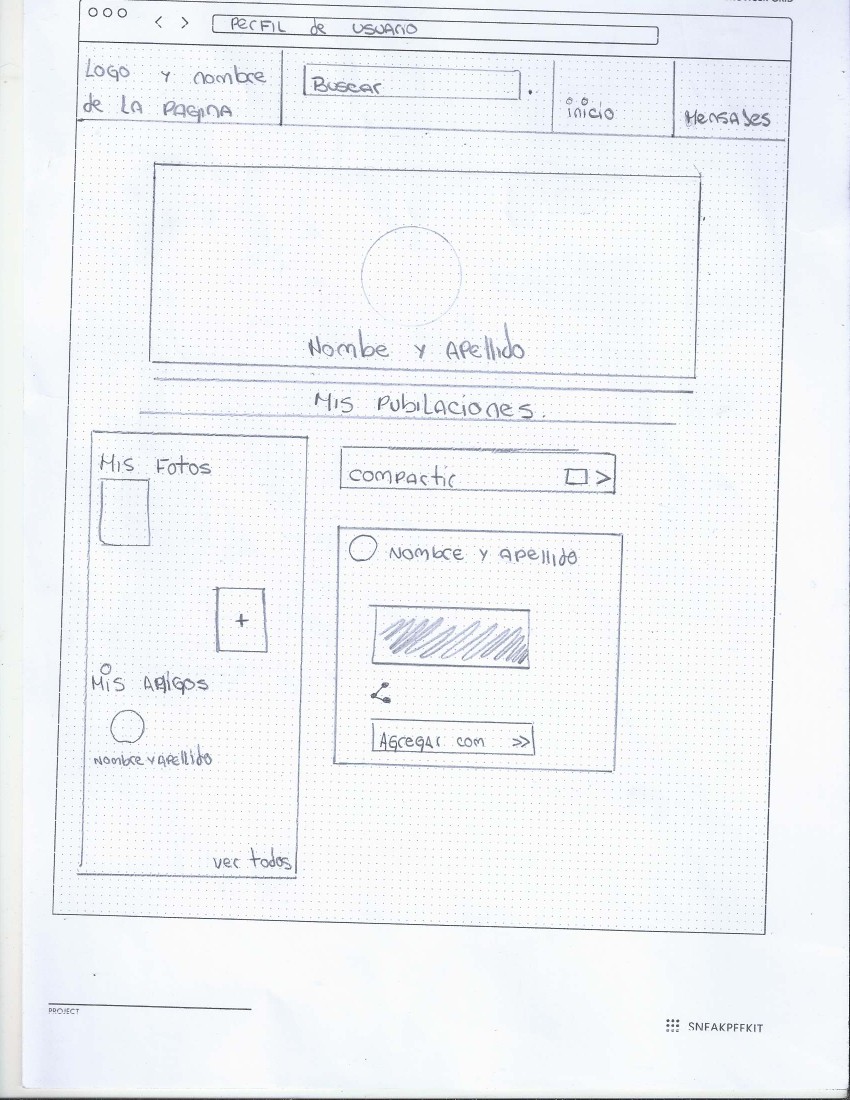 PERFIL de USUARIO
LOGO y nombre
de LA PAGINA
Buscar
inicio
Mensajes
Nombe y Apellido
Mis Pubilaciones.
Mis Fotos
compartir
Nombre y Apellido
+
Mis Amigos
Agregar com >>
Nombre y Apellido
ver todos
PROJECT
SNEAKPEEKIT